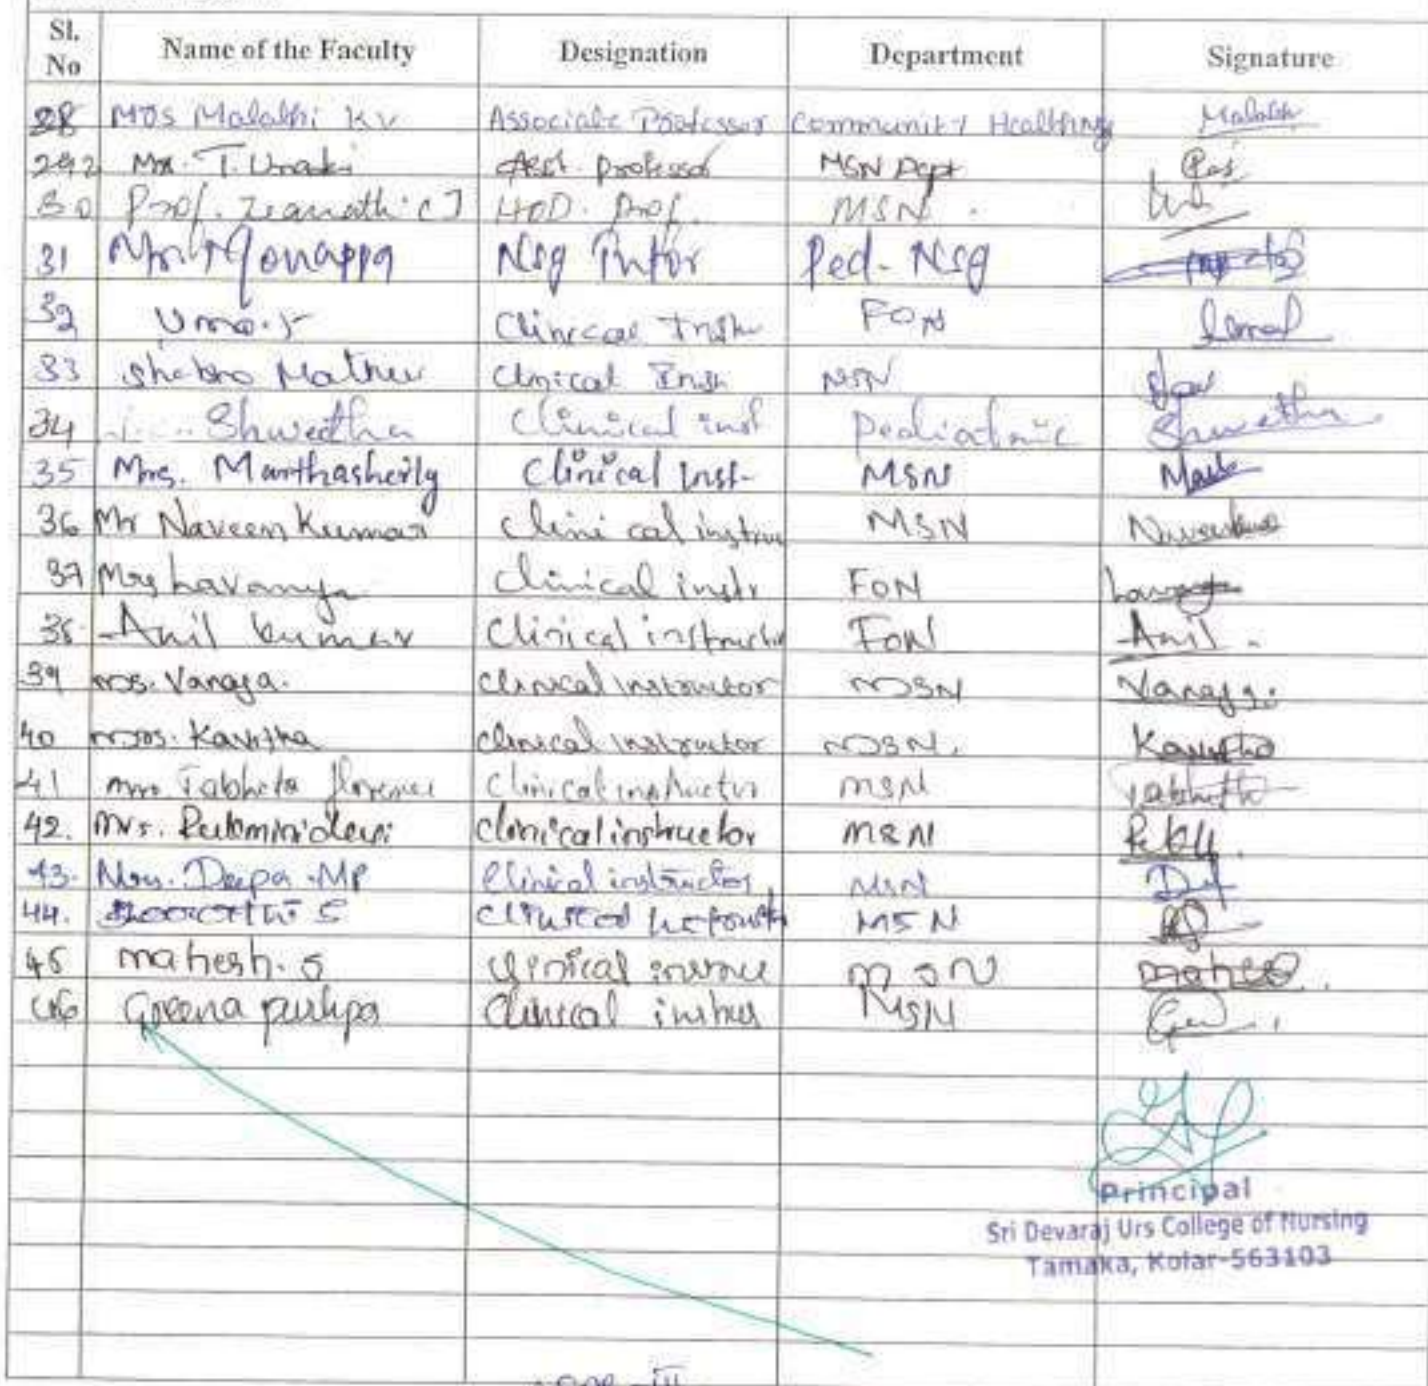 Sl. No Name of the Faculty Designation Department Signature
28 Mrs Malathi K V Associate Professor Community Health Malathi
29 Mr. T. Asst. professor MSN Dept
30 Prof. Zeanath C J HOD. Prof. MSN.
31 Mr. Monappa Nsg Tutor Ped. Nsg
32 Uma. Clinical Instr FON
33 Mathew Clinical Inst MSN
34 Shwetha Clinical inst Pediatric Shwetha
35 Mrs. Marthasheily Clinical Inst- MSN
36 Mr Naveen Kumar Clinical instruc MSN
37 Mrs Lavanya Clinical instr FON
38 Anil kumar Clinical instructor FON Anil.
39 Mrs. Vanaja. Clinical instructor MSN Vanaja.
40 Mrs. Kavitha Clinical instructor MSN. Kavitha
41 Mrs Tabheta florence Clinical instructor MSN Tabheth
42. Mrs. Rukminidevi Clinical instructor MSN
43. Mrs. Deepa .MP Clinical instructor MSN
44. Clinical MSN
45 mahesh. S Clinical MSN
46 Greena pushpa Clinical instruc MSN
Principal
Sri Devaraj Urs College of Nursing
Tamaka, Kolar-563103